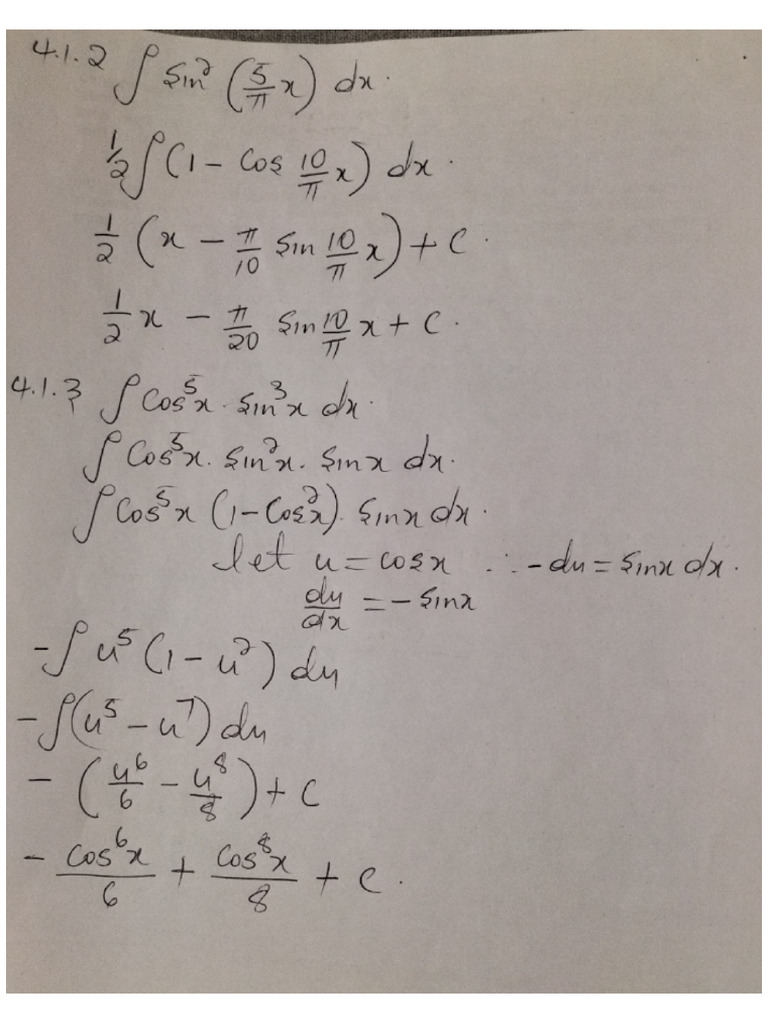 4.1.2 ∫ sin² (5/π x) dx.
1/2 ∫ (1 - cos 10/π x) dx.
1/2 (x - π/10 sin 10/π x) + c.
1/2 x - π/20 sin 10/π x + c.
4.1.3 ∫ cos⁵x · sin³x dx.
∫ cos⁵x · sin²x · sinx dx.
∫ cos⁵x (1 - cos²x) · sinx dx.
let u = cosx ∴ -du = sinx dx.
du/dx = - sinx
- ∫ u⁵ (1 - u²) du
- ∫ (u⁵ - u⁷) du
- (u⁶/6 - u⁸/8) + c
- cos⁶x/6 + cos⁸x/8 + c.